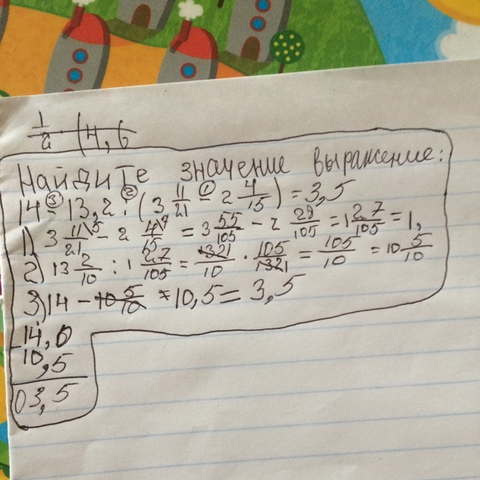 1/2 · (4,6
Найдите значение выражение:
14 - 13,2 : (3 11/21 - 2 4/15) = 3,5
1) 3 11\5/21 - 2 4\7/15 = 3 55/105 - 2 28/105 = 1 27/105 = 1,
2) 13 2/10 : 1 27/105 = 1321/10 · 105/1321 = 105/10 = 10 5/10
3) 14 - 10 5/10 = 10,5 = 3,5
14,0
10,5
03,5